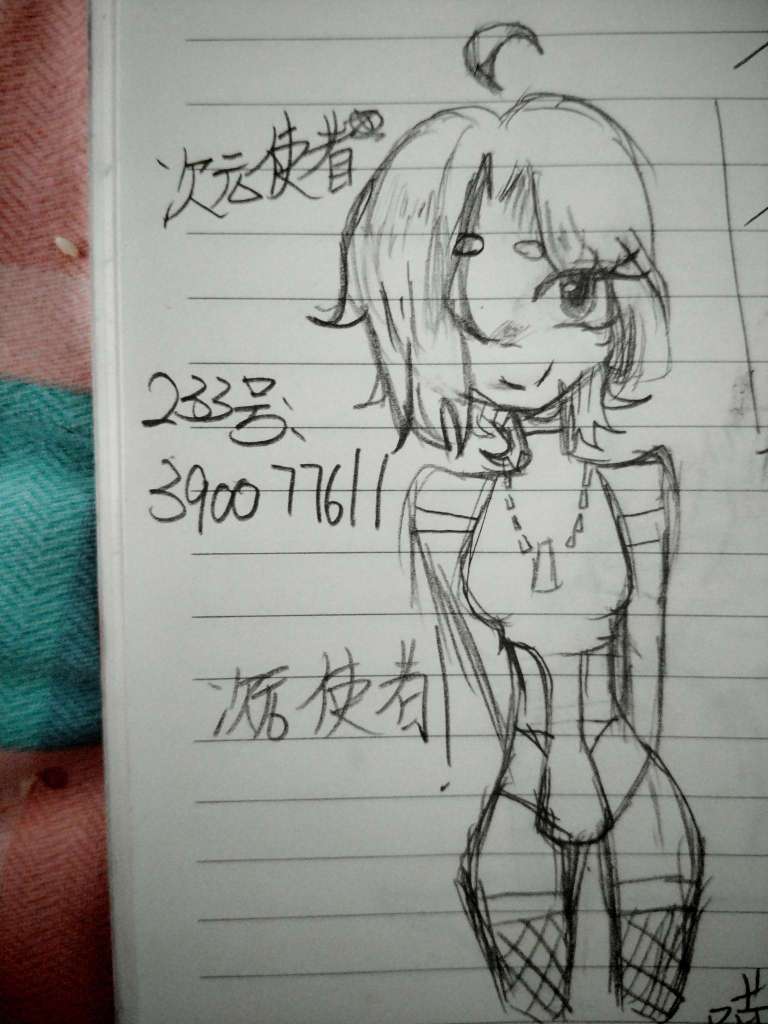 次元使者
233号、
390077611
次元使者